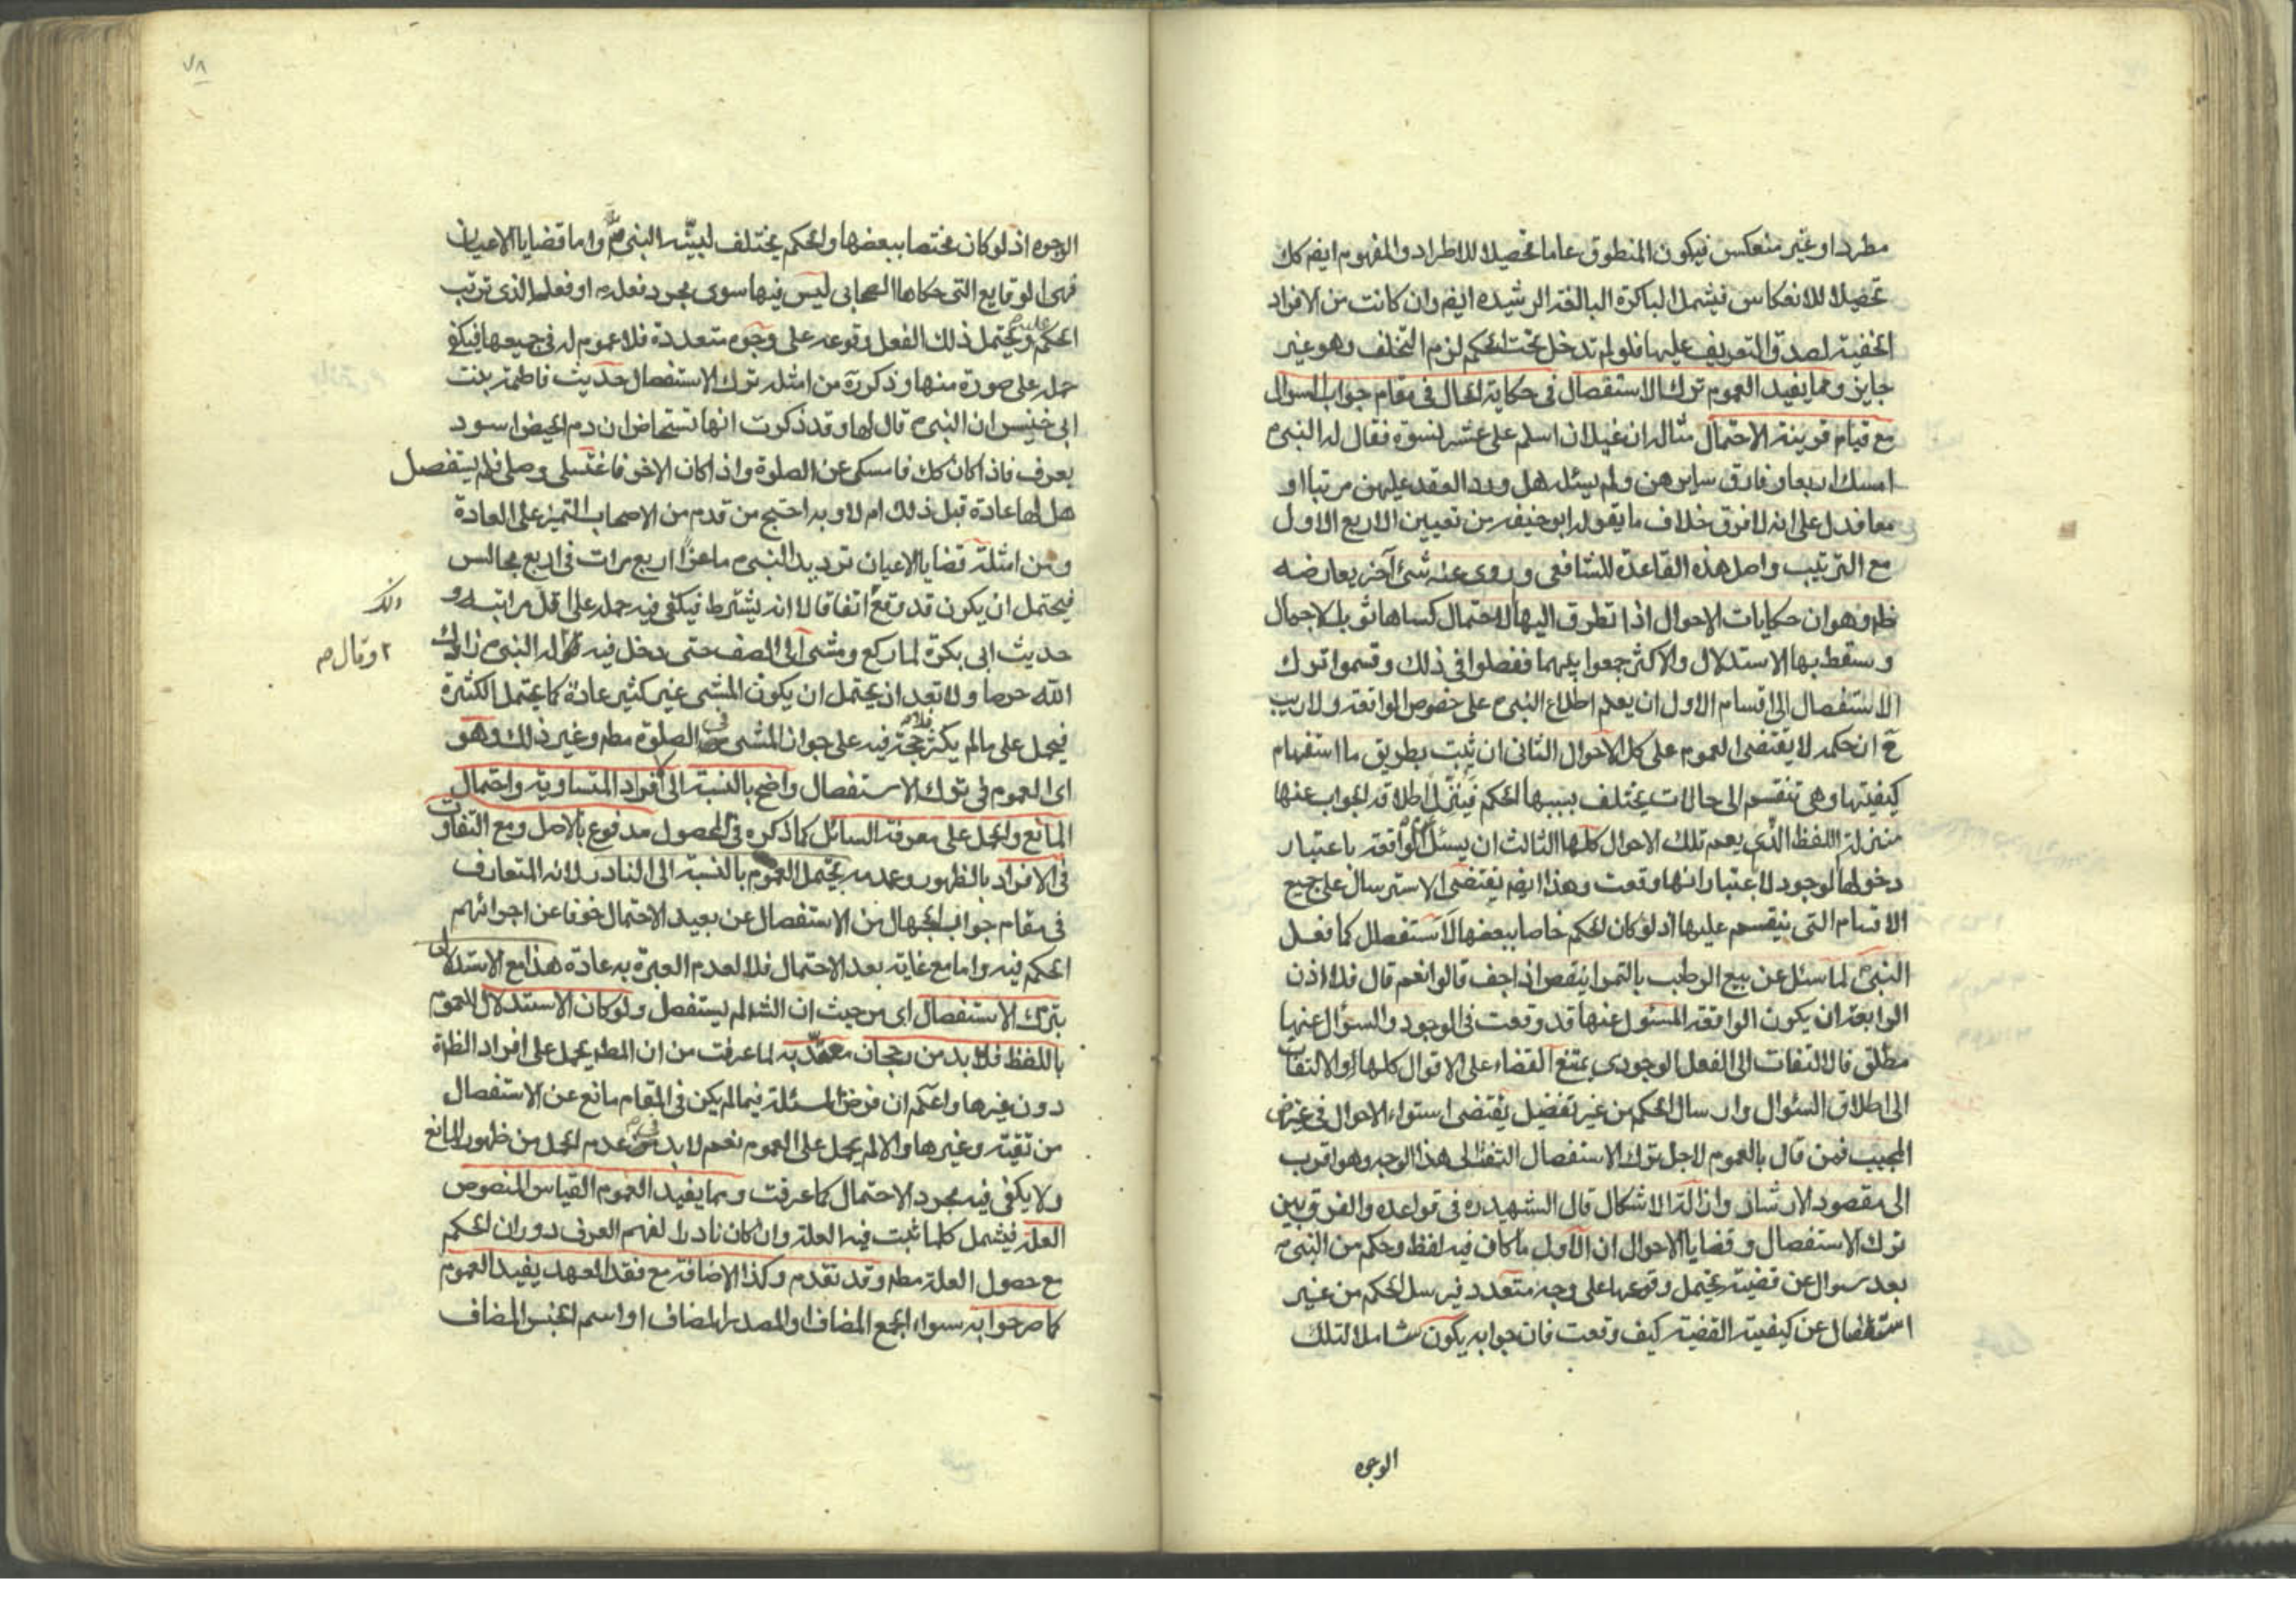 مطرد او غير منعكس فيكون المنطوق عاما تحصيلا للاطراد والمفهوم ايضم كك
تحصيلا للانعكاس فيشمل الباكرة البالغة الرشيده ايضم وان كانت من الافراد
الخفية لصدق التعريف عليها فلو لم تدخل تحت الحكم لزم التخلف وهو غير
جايز ومما يفيد العموم ترك الاستفصال في حكاية الحال في مقام جواب السوال
مع قيام قرينة الاحتمال مثاله ان غيلان اسلم على عشر نسوة فقال له النبي ص
امسك اربعا وفارق سايرهن ولم يسئله هل ورد العقد عليهن مرتبا او
معا فدل على انه لا فرق خلاف ما يقوله ابو حنيفه من تعيين الاربع الاول
مع الترتيب واصل هذه القاعدة للشافعي وروى عنه شئ آخر يعارضه
ظم وهو ان حكايات الاحوال اذا تطرق اليها الاحتمال كساها ثوب الاجمال
وسقط بها الاستدلال والاكثر جمعوا بينهما ففصلوا في ذلك وقسموا ترك
الاستفصال الى اقسام الاول ان يعلم اطلاع النبي ص على خصوص الواقعة ولا ريب
ح ان حكمه لا يقتضى العموم على كل الاحوال الثاني ان يثبت بطريق ما استفهام
كيفيتها وهى تنقسم الى حالات يختلف بسببها الحكم فينزل اطلاقه الجواب عنها
منزلة اللفظ الذي يعم تلك الاحوال كلها الثالث ان يسئل الواقعة باعتبار
دخولها الوجود لا باعتبار انها وقعت وهذا ايضم يقتضى الاسترسال على جميع
الاقسام التى ينقسم عليها اذ لو كان الحكم خاصا ببعضها لاستفصل كما فعل
النبي ص لما سئل عن بيع الرطب بالتمر اينقص اذا جف قالوا نعم قال فلا اذن
الرابعة ان يكون الواقعة المسئول عنها قد وقعت في الوجود والسؤال عنها
مطلق فالالتفات الى الفعل الوجودي يمتنع القضاء على الاقوال كلها والالتفات
الى اطلاق السئوال وارسال الحكم من غير تفضيل يقتضى استواء الاحوال في غرض
المجيب فمن قال بالعموم لاجل ترك الاستفصال التفت الى هذا الوجه وهو اقرب
الى مقصود الارشاد وازالة الاشكال قال الشهيد ره في قواعده والفرق بين
ترك الاستفصال وقضايا الاحوال ان الاول ما كان فيه لفظ وحكم من النبي ص
بعد سوال عن قضية يحتمل وقوعها على وجه متعدد فيرسل الحكم من غير
استفصال عن كيفية القضية كيف وقعت فان جوابه يكون شاملا لتلك
الوجوه
٧٨
الوجوه اذ لو كان مختصا ببعضها والحكم يختلف لبينه النبي ص واما قضايا الاعيان
فهي الوقايع التى حكاها الصحابي ليس فيها سوى مجرد فعله ص او فعل الذى ترتب
الحكم عليه ويحتمل ذلك الفعل وقوعه على وجوه متعددة فلا عموم له في جميعها فيكفى
حمله على صورة منها وذكره من امثلة ترك الاستفصال حديث فاطمة بنت
ابي خنيس ان النبي ص قال لها وقد ذكرت انها تستحاض ان دم الحيض اسود
يعرف فاذا كان كك فامسكى عن الصلوة واذا كان الاخر فاغتسلى وصلى فلم يستفصل
هل لها عادة قبل ذلك ام لا وبه احتج من قدم من الاصحاب التميز على العادة
ومن امثلة قضايا الاعيان ترديد النبي ص ماعزا اربع مرات في اربع مجالس
فيحتمل ان يكون قد وقع اتفاقا لا انه يشترط فيكفى فيه حمله على اقل مراتبه و
حديث ابي بكرة لما ركع ومشى الى الصف حتى دخل فيه فقال له النبي ص زادك
٢ وقال ص
الله حرصا ولا تعد اذ يحتمل ان يكون المشى غير كثير عادة كما يحتمل الكثيرة
فيحمل على ما لم يكثر فلا حجة فيه على جواز المشى في الصلوة مطم وغير ذلك وهو
اى العموم في ترك الاستفصال واضح بالنسبة الى افراد المتساوية واحتمال
المانع والحمل على معرفة السائل كما ذكره في المحصول مدفوع بالاصل ومع التفاوت
في الافراد بالظهور وعدمه يحتمل العموم بالنسبة الى النادر لانه المتعارف
في مقام جواب الجهال من الاستفصال عن بعيد الاحتمال خوفا عن اجرائهم
الحكم فيه واما مع غاية بعد الاحتمال فلا لعدم العبرة به عادة هذا مع الاستدلال
بترك الاستفصال اى من حيث ان الشم لم يستفصل ولو كان الاستدلال للعموم
باللفظ فلا بد من رجحان معتد به لما عرفت من ان المطم يحمل على افراد الظاهرة
دون غيرها واعلم ان فرض المسئلة فيما لم يكن في المقام مانع عن الاستفصال
من تقية وغيرها والا لم يحمل على العموم نعم لا بد في عدم الحمل من ظهور المانع
ولا يكفى فيه مجرد الاحتمال كما عرفت ومما يفيد العموم القياس المنصوص
العلة فيشمل كلما ثبت فيه العلة وان كان نادرا لفهم العرف دوران الحكم
مع حصول العلة مطم وقد تقدم وكذا الاضافة مع فقد العهد يفيد العموم
كما صرحوا به سواء الجمع المضاف او المصدر المضاف او اسم الجنس المضاف